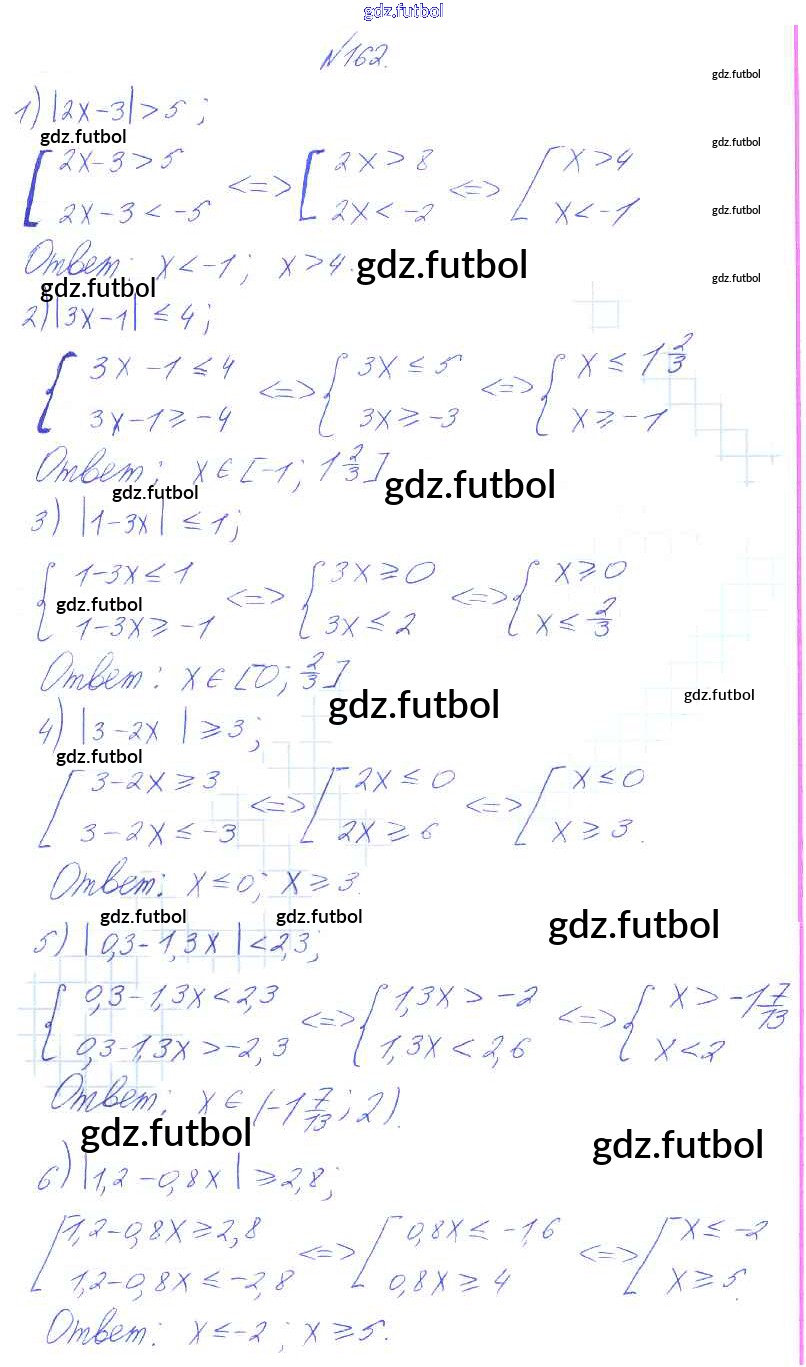 gdz.futbol
№162.
gdz.futbol
1) |2x-3|>5;
gdz.futbol
gdz.futbol
[ 2x-3>5 <=> [ 2x>8 <=> [ x>4
2x-3<-5 2x<-2 x<-1
gdz.futbol
Ответ: x<-1; x>4.
gdz.futbol
gdz.futbol
gdz.futbol
2) |3x-1| ≤ 4;
{ 3x-1≤4 <=> { 3x≤5 <=> { x≤1 2/3
3x-1≥-4 3x≥-3 x≥-1
Ответ; x∈[-1; 1 2/3]
gdz.futbol
gdz.futbol
3) |1-3x| ≤1;
{ 1-3x≤1 <=> { 3x≥0 <=> { x≥0
gdz.futbol
1-3x≥-1 3x≤2 x≤ 2/3
Ответ: x∈[0; 2/3]
gdz.futbol
gdz.futbol
4) |3-2x| ≥3;
gdz.futbol
[ 3-2x≥3 <=> [ 2x≤0 <=> [ x≤0
3-2x≤-3 2x≥6 x≥3.
Ответ: x≤0; x≥3.
gdz.futbol
gdz.futbol
gdz.futbol
5) |0,3-1,3x|<2,3;
{ 0,3-1,3x<2,3 <=> { 1,3x>-2 <=> { x>-1 7/13
0,3-1,3x>-2,3 1,3x<2,6 x<2
Ответ; x∈(-1 7/13; 2).
gdz.futbol
gdz.futbol
6) |1,2-0,8x| ≥2,8;
[ 1,2-0,8x≥2,8 <=> [ 0,8x≤-1,6 <=> [ x≤-2
1,2-0,8x≤-2,8 0,8x≥4 x≥5.
Ответ: x≤-2; x≥5.